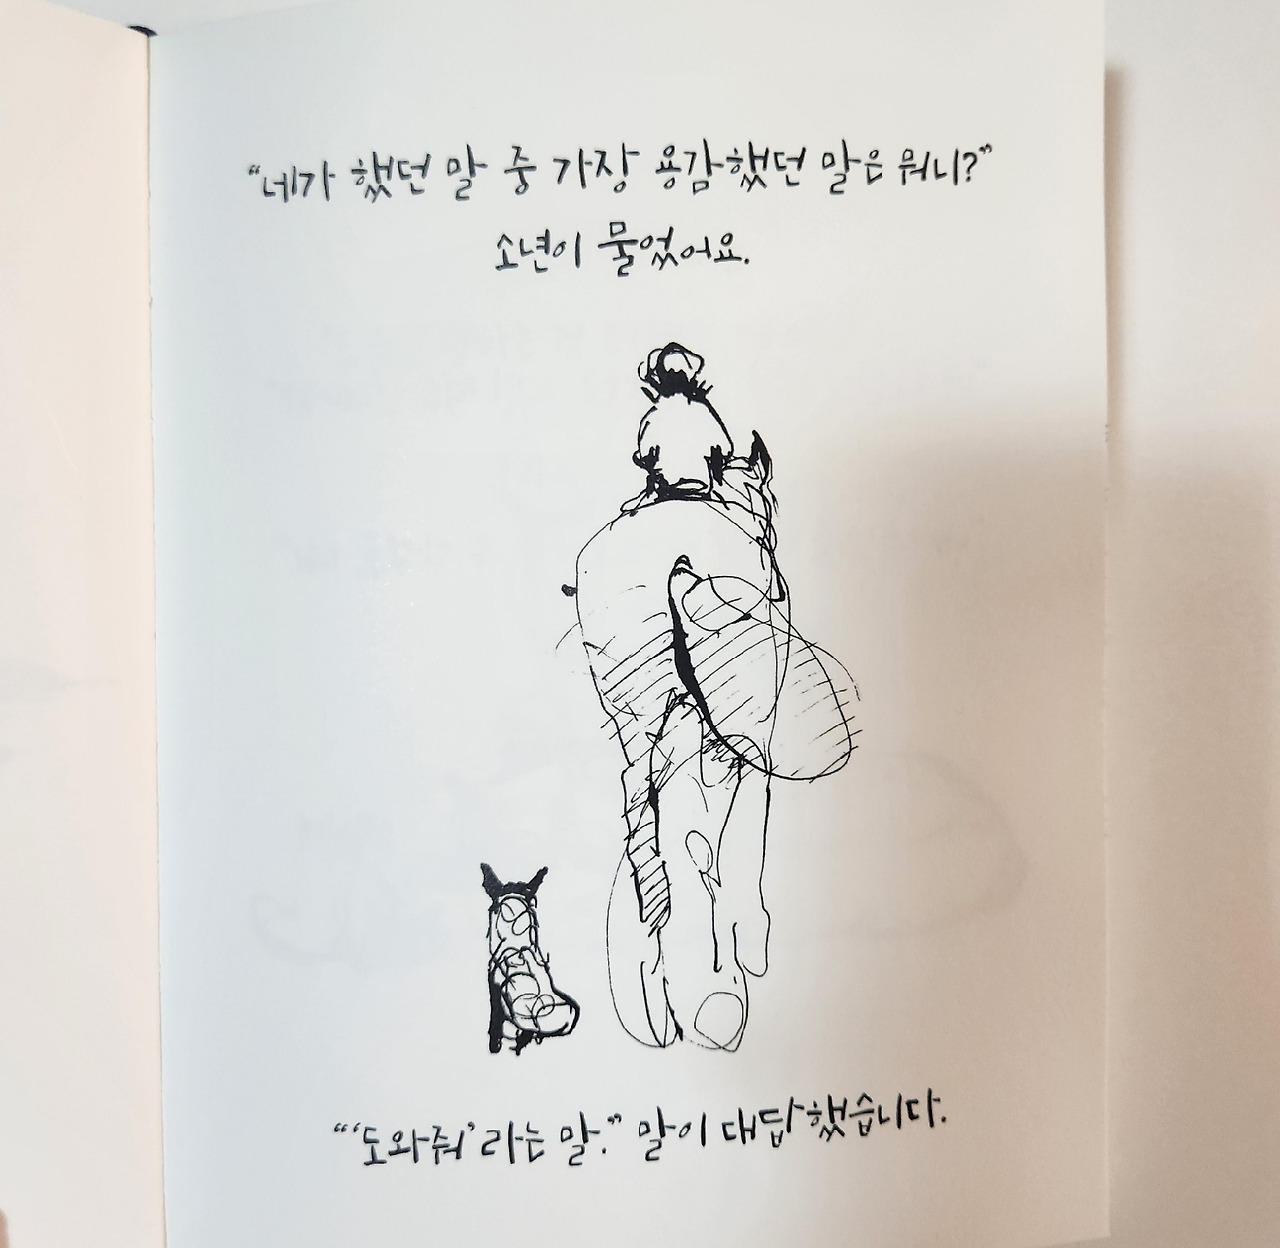 “네가 했던 말 중 가장 용감했던 말은 뭐니?”
소년이 물었어요.
“‘도와줘’라는 말.” 말이 대답했습니다.